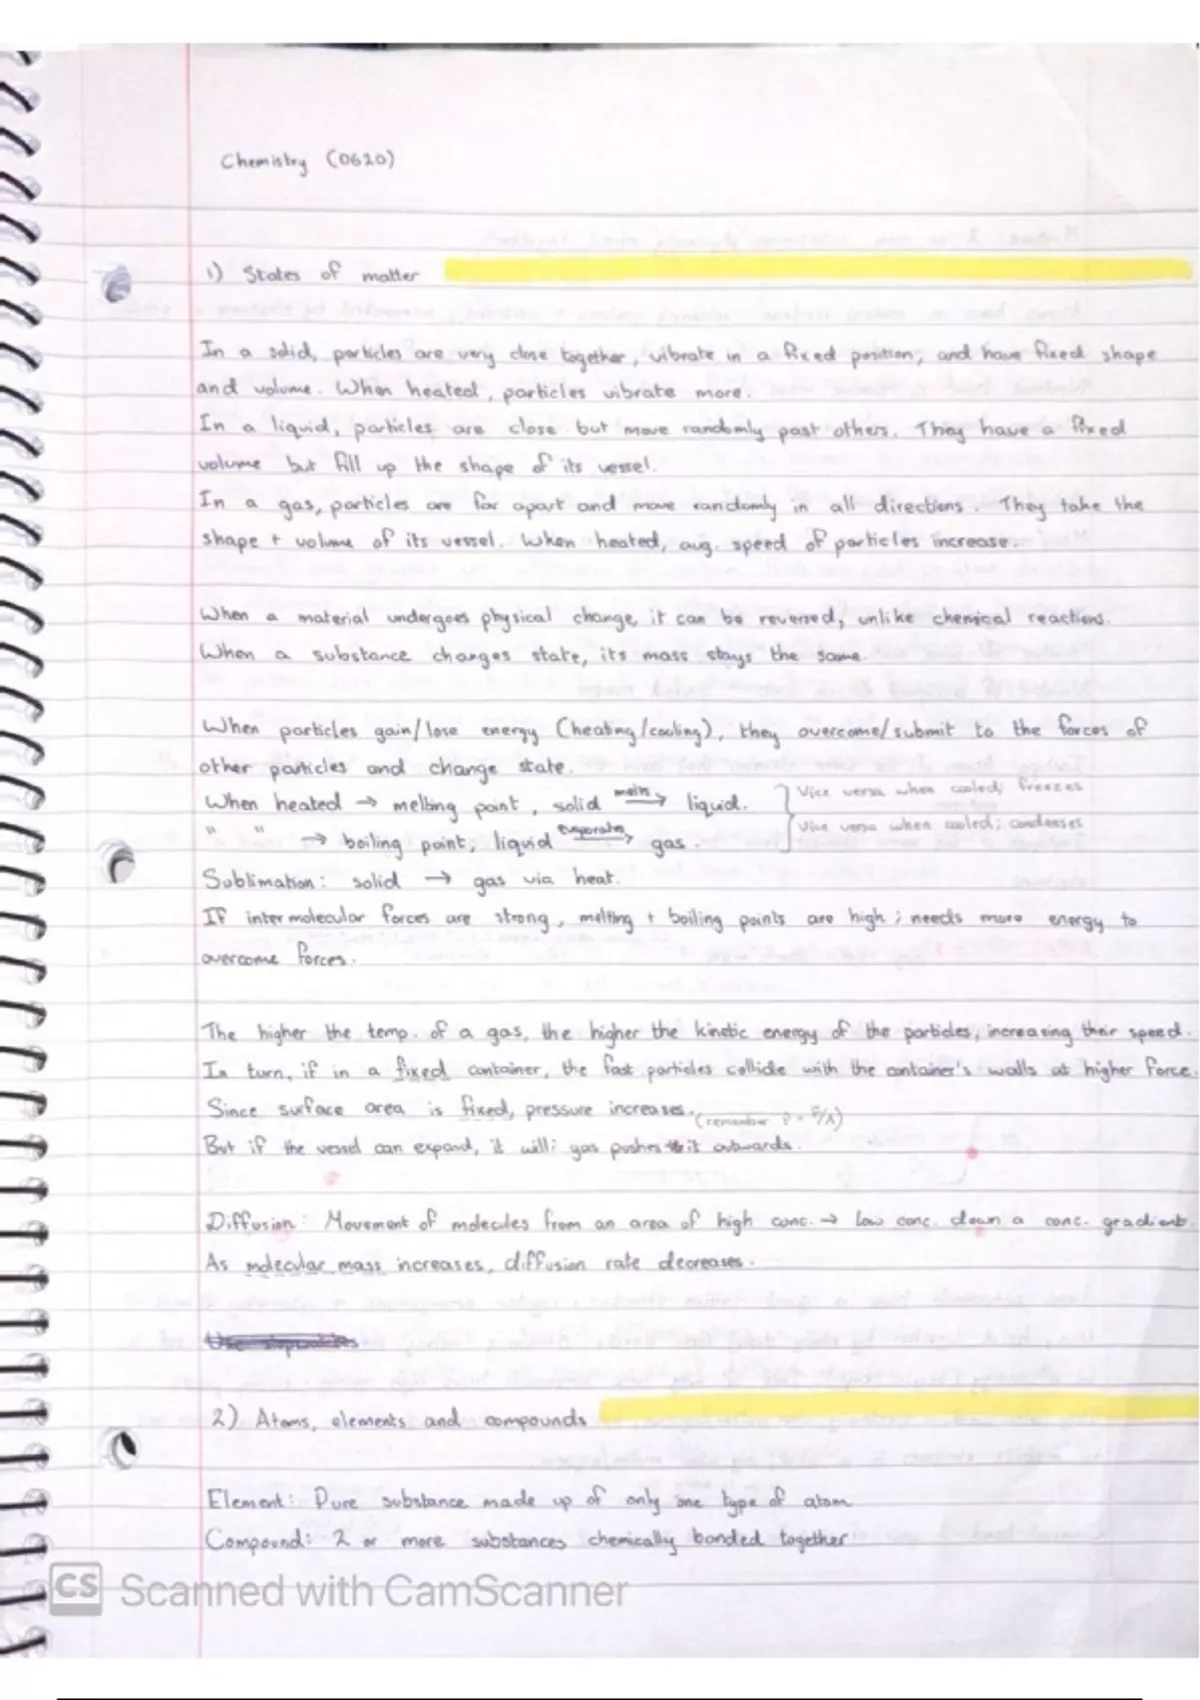 Chemistry (0620)
1) States of matter
In a solid, particles are very close together, vibrate in a fixed position, and have fixed shape
and volume. When heated, particles vibrate more.
In a liquid, particles are close but move randomly past others. They have a fixed
volume but fill up the shape of its vessel.
In a gas, particles are far apart and move randomly in all directions. They take the
shape + volume of its vessel. When heated, avg. speed of particles increase.
When a material undergoes physical change, it can be reversed, unlike chemical reactions.
When a substance changes state, its mass stays the same.
When particles gain/lose energy (heating/cooling), they overcome/submit to the forces of
other particles and change state.
When heated → melting point, solid melts→ liquid. } Vice versa when cooled; freezes
" " → boiling point, liquid evaporates→ gas. } Vice versa when cooled; condenses
Sublimation: solid → gas via heat.
If intermolecular forces are strong, melting + boiling points are high; needs more energy to
overcome forces.
The higher the temp. of a gas, the higher the kinetic energy of the particles, increasing their speed.
In turn, if in a fixed container, the fast particles collide with the container's walls at higher force.
Since surface area is fixed, pressure increases. (remember P = F/A)
But if the vessel can expand, it will: gas pushes it outwards.
Diffusion: Movement of molecules from an area of high conc. → low conc. down a conc. gradient.
As molecular mass increases, diffusion rate decreases.
2) Atoms, elements and compounds
Element: Pure substance made up of only one type of atom
Compound: 2 or more substances chemically bonded together
CS Scanned with CamScanner